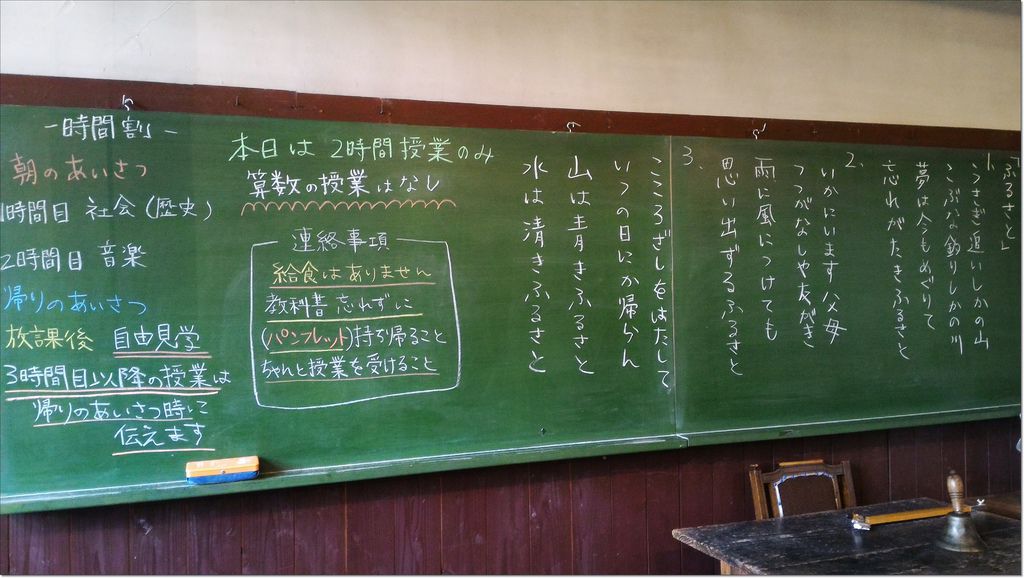 -時間割-
朝のあいさつ
1時間目 社会(歴史)
2時間目 音楽
帰りのあいさつ
放課後 自由見学
3時間目以降の授業は
帰りのあいさつ時に
伝えます
本日は 2時間授業のみ
算数の授業はなし
連絡事項
給食はありません
教科書忘れずに
(パンフレット)持ち帰ること
ちゃんと授業を受けること
「ふるさと」
1.
うさぎ追いしかの山
こぶな釣りしかの川
夢は今もめぐりて
忘れがたきふるさと
2.
いかにいます父母
つつがなしや友がき
雨に風につけても
思い出ずるふるさと
3.
こころざしをはたして
いつの日にか帰らん
山は青きふるさと
水は清きふるさと